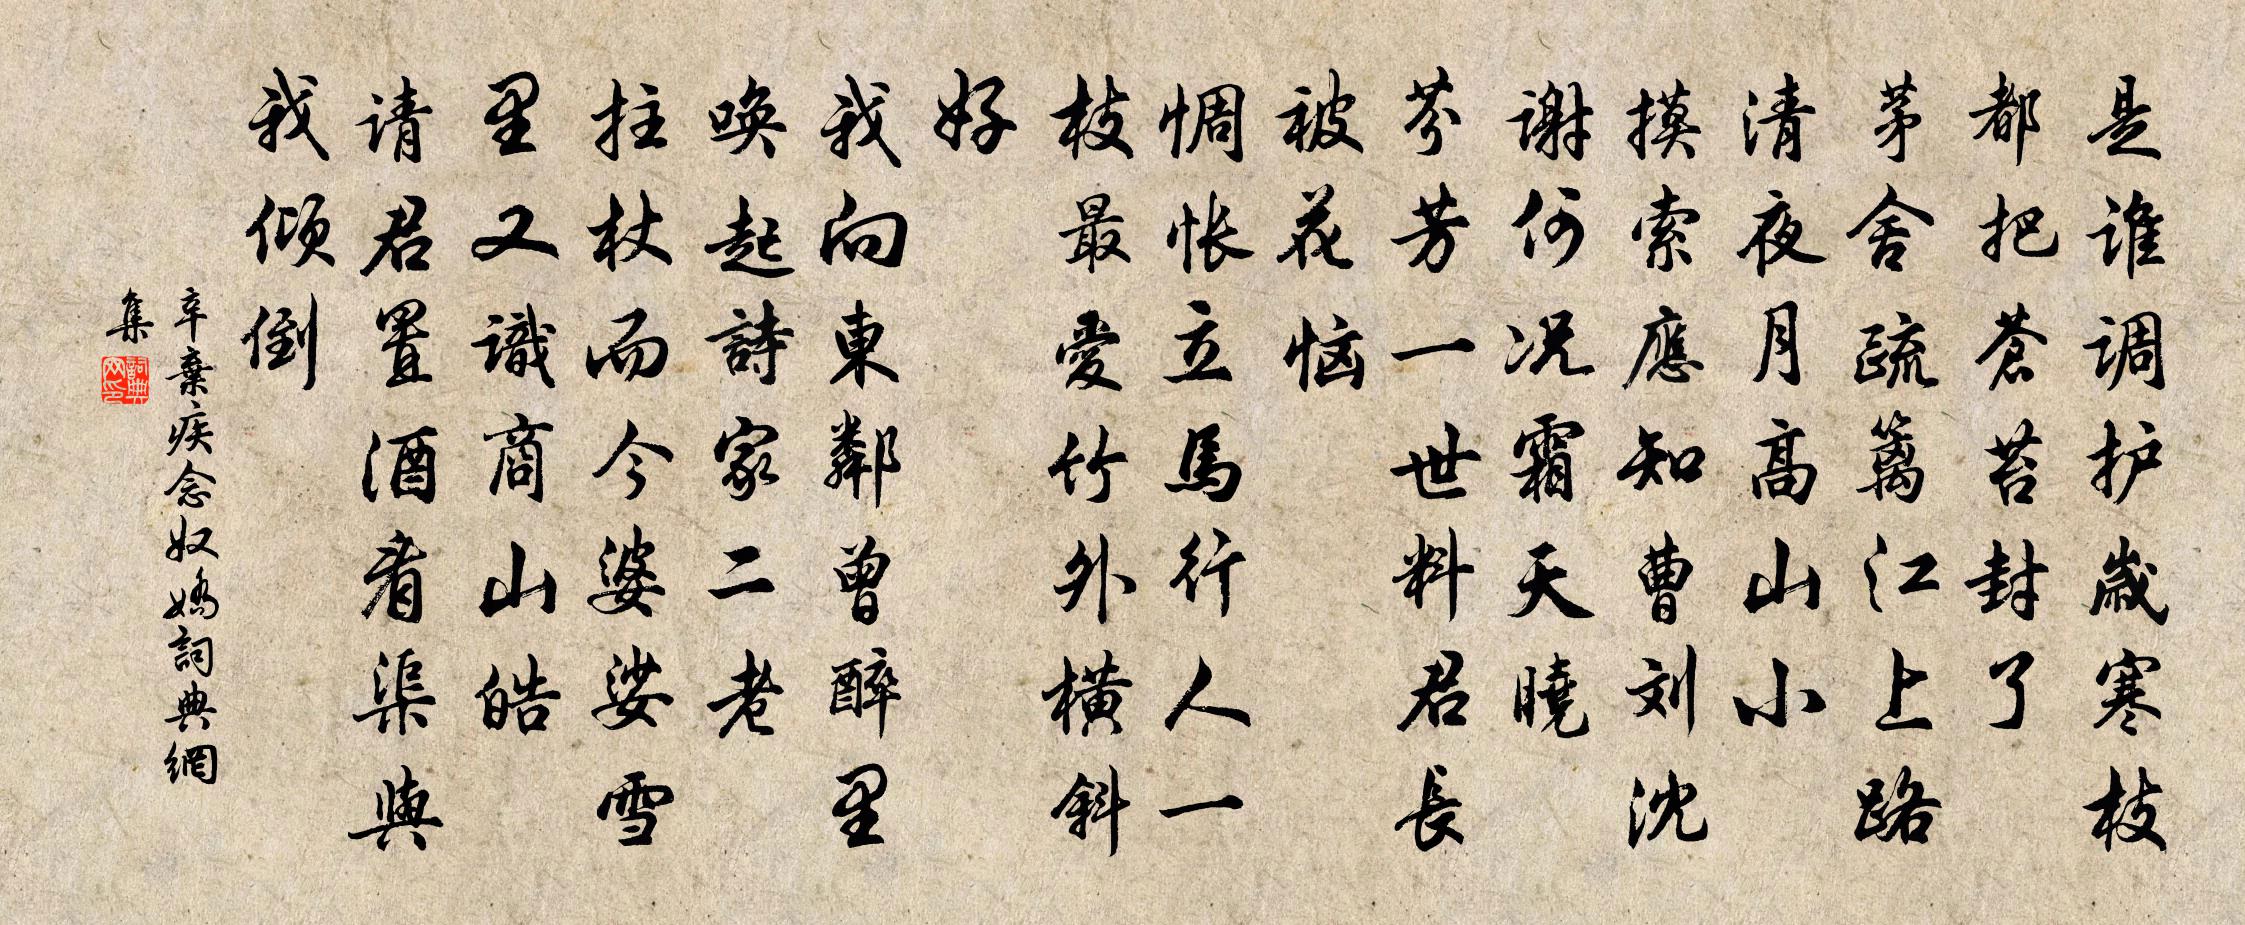 是谁调护岁寒枝
都把苍苔封了
茅舍疏篱江上路
清夜月高山小
摸索應知曹刘沈
谢何况霜天曉
芬芳一世料君長
被花恼
惆怅立馬行人一
枝最愛竹外橫斜
好
我向東鄰曾醉里
唤起詩家二老
拄杖而今婆娑雪
里又識商山皓
请君置酒看渠與
我倾倒
辛棄疾念奴嬌詞典網
集
詞典
网印